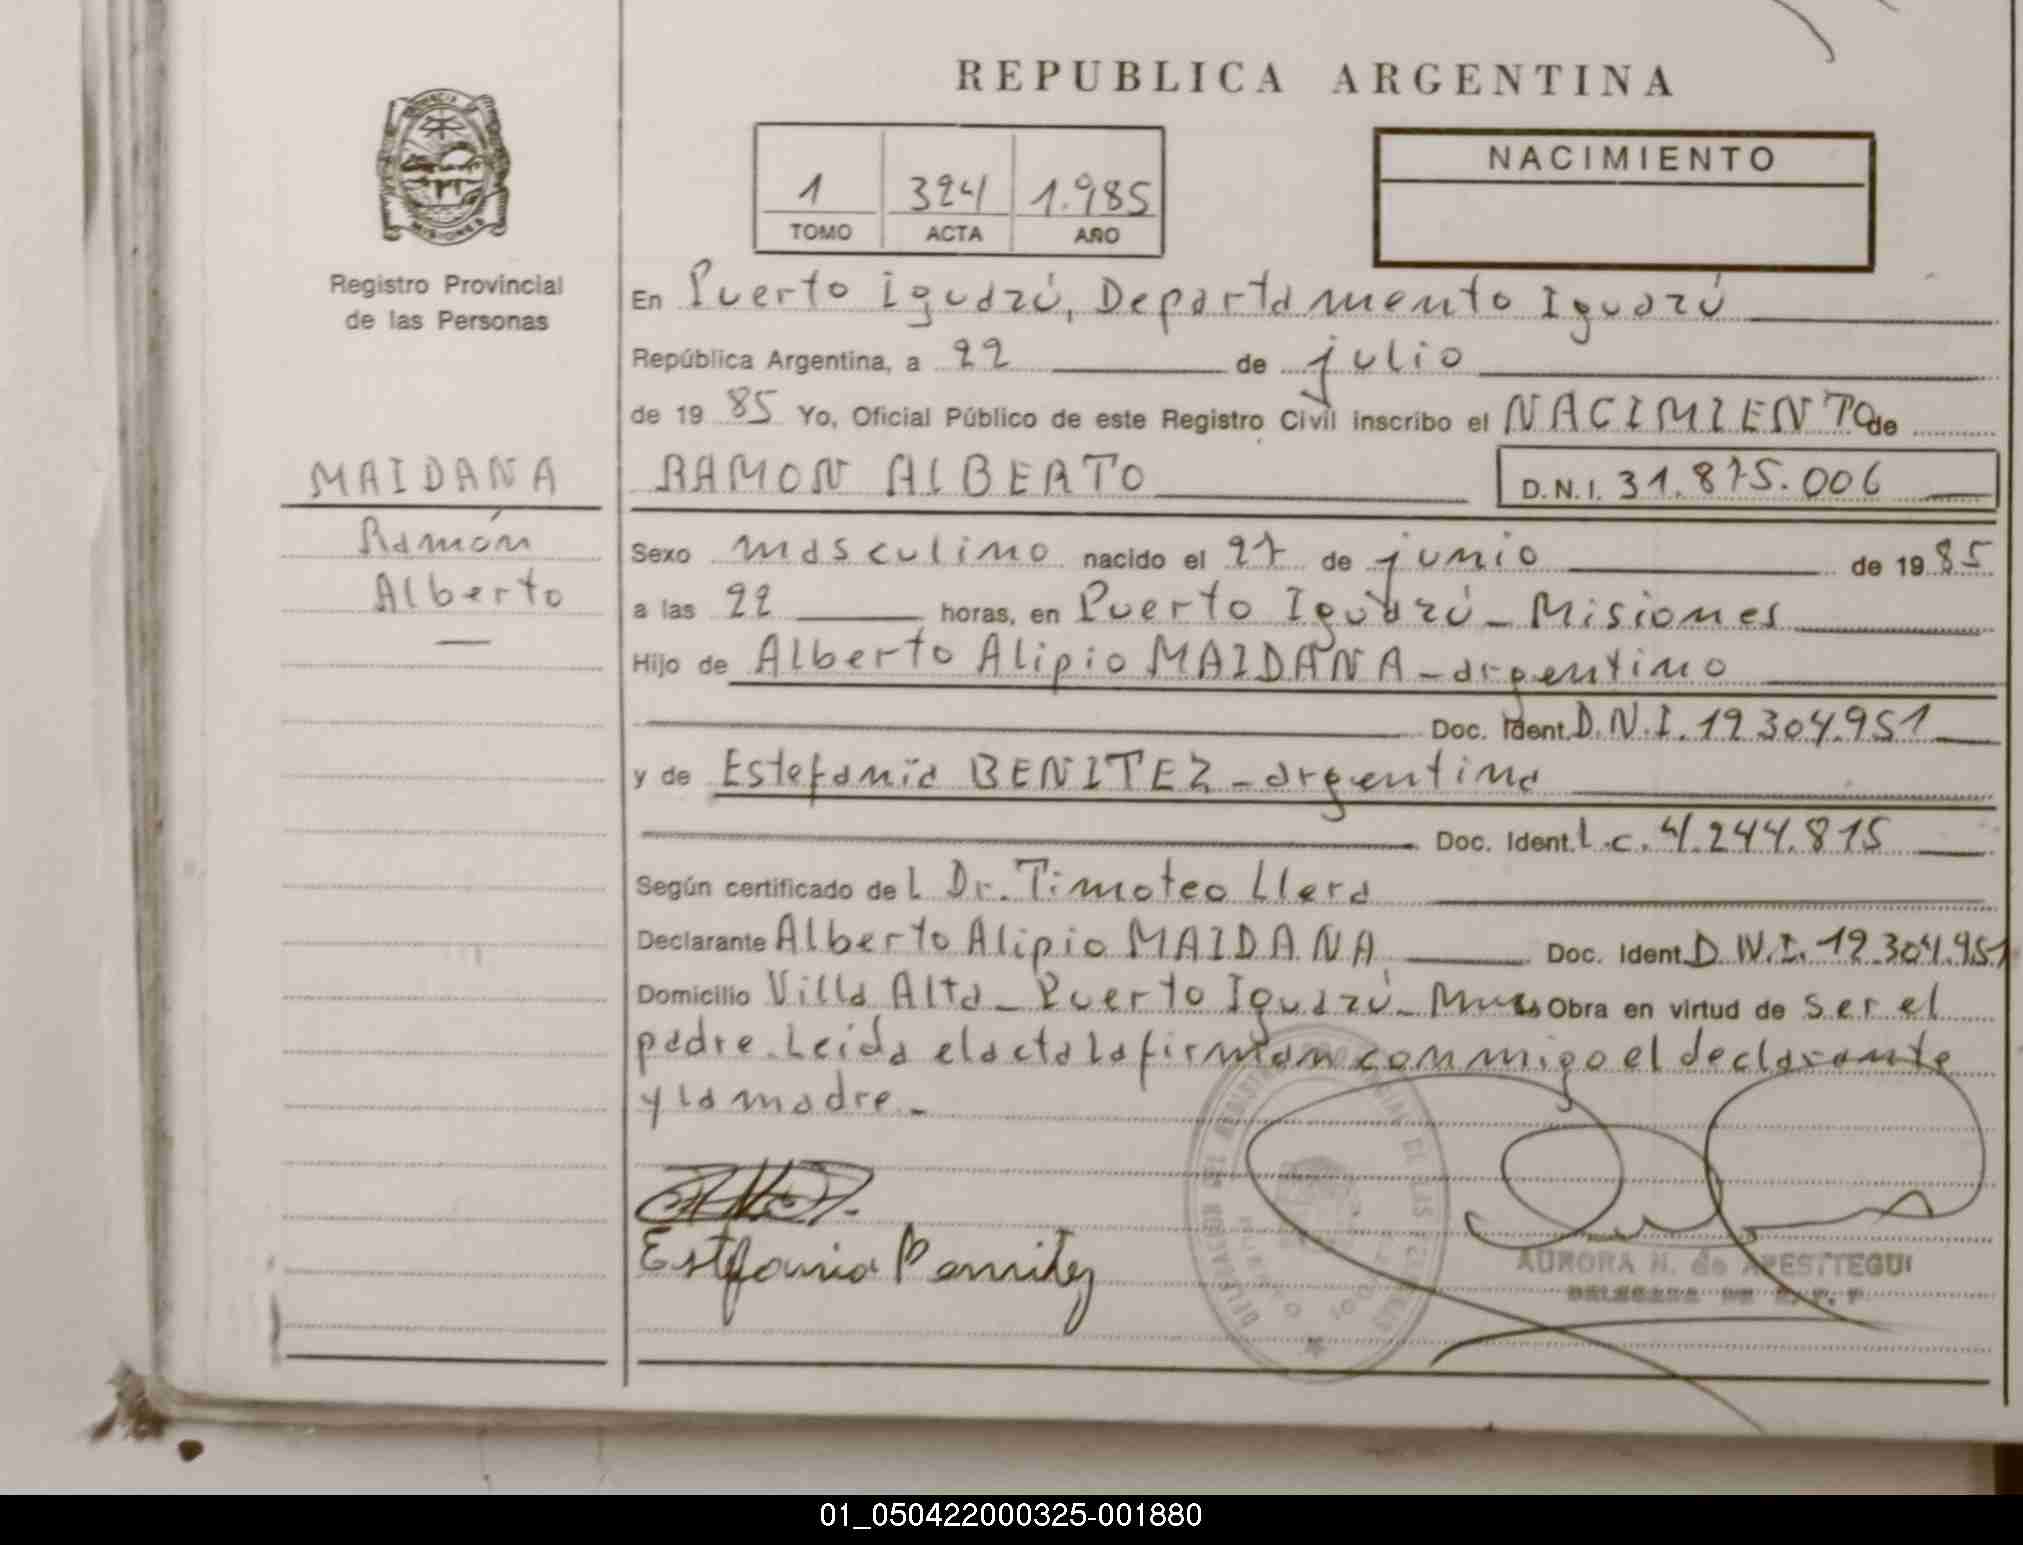 REPUBLICA ARGENTINA
PROVINCIA
MISIONES
Registro Provincial
de las Personas
1 324 1.985
TOMO ACTA AÑO
NACIMIENTO
En Puerto Iguazú, Departamento Iguazú
República Argentina, a 22 de julio
de 19 85 Yo, Oficial Público de este Registro Civil inscribo el NACIMIENTO de
MAIDANA
Ramón
Alberto
RAMON ALBERTO D.N.I. 31.875.006
Sexo masculino nacido el 27 de junio de 19 85
a las 22 horas, en Puerto Iguazú - Misiones
Hijo de Alberto Alipio MAIDANA - argentino
Doc. Ident. D.N.I. 12.304.951
y de Estefania BENITEZ - argentina
Doc. Ident. L.C. 4.244.815
Según certificado del Dr. Timoteo Llera
Declarante Alberto Alipio MAIDANA Doc. Ident. D.N.I. 12.304.951
Domicilio Villa Alta - Puerto Iguazú - Obra en virtud de ser el
padre. Leida el acta la firman conmigo el declarante
y la madre.-
Estefania Benitez
AURORA N. de APESTEGUI
01_050422000325-001880